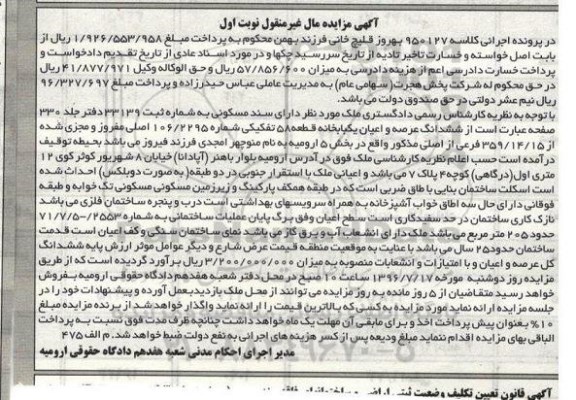 آگهی مزایده مال غیرمنقول نوبت اول
در پرونده اجرائی کلاسه ۹۵۰۱۲۷ بهروز قلیچ خانی فرزند بهمن محکوم به پرداخت مبلغ ۱/۹۲۶/۵۵۳/۹۵۸ ریال از
بابت اصل خواسته و خسارت تاخیر تادیه از تاریخ سررسید چکها و در مورد اسناد عادی از تاریخ تقدیم دادخواست و
پرداخت خسارت دادرسی اعم از هزینه دادرسی به میزان ۵۷/۸۵۶/۶۰۰ ریال و حق الوکاله وکیل ۴۱/۸۷۷/۹۷۱ ریال
در حق محکوم له شرکت پخش هجرت (سهامی عام) به مدیریت عاملی عباس حیدرزاده و پرداخت مبلغ ۹۶/۳۲۷/۶۹۷
ریال نیم عشر دولتی در حق صندوق دولت می باشد.
با توجه به نظریه کارشناس رسمی دادگستری ملک مورد نظر دارای سند مسکونی به شماره ثبت ۳۳۱۳۹ دفتر جلد ۳۳۰
صفحه عبارت است از ششدانگ عرصه و اعیان یکبابخانه قطعه ۵۸ تفکیکی شماره ۱۰۶/۲۲۹۵ اصلی مفروز و مجزی شده
از ۳۵۹/۱۴/۱۵ فرعی از اصلی مذکور واقع در بخش ۵ ارومیه به نام منوچهر امجدی فرزند فیروز می باشد بحیطه توقیف
در آمده است حسب اعلام نظریه کارشناسی ملک فوق در آدرس ارومیه بلوار باهنر (آپادانا) خیابان ۸ شهریور کوثر کوی ۱۲
متری اول (درگاهی) کوچه ۴ پلاک ۷ می باشد و اعیانی ملک با استقرار جنوبی در دو طبقه (به صورت دوبلکس) احداث شده
است اسکلت ساختمان بنایی با طاق ضربی است که در طبقه همکف پارکینگ و زیرزمین مسکونی مسکونی تک خوابه و طبقه
فوقانی دارای حال سه اطاق خواب آشپزخانه به همراه سرویسهای بهداشتی است درب و پنجره ساختمان فلزی می باشد
نازک کاری ساختمان در حد سفیدکاری است سطح اعیان وفق برگ پایان عملیات ساختمانی به شماره ۲۵۵۳-۷۱/۷/۵
حدود ۲۰۵ متر مربع می باشد ملک دارای انشعاب آب و برق گاز می باشد نمای ساختمان سنگی و کف اعیان است قدمت
ساختمان حدود ۲۵ سال می باشد با عنایت به موقعیت منطقه قیمت عرض شارع و دیگر عوامل موثر ارزش پایه ششدانگ
کل عرصه و اعیان و با امتیازات و انشعابات منصوبه به میزان ۳/۲۰۰/۰۰۰/۰۰۰ ریال برآورد گردیده است که از طریق
مزایده روز دوشنبه مورخه ۱۳۹۶/۷/۱۷ ساعت ۱۰ صبح در محل دفتر شعبه هفدهم دادگاه حقوقی ارومیه بفروش
خواهد رسید متقاضیان از ۵ روز مانده به روز مزایده می توانند از محل ملک بازدید بعمل آورده و پیشنهادات خود را در
جلسه مزایده ارائه نماید مورد مزایده به کسی که بالاترین قیمت را ارائه نماید واگذار خواهد شد. از برنده مزایده مبلغ
۱۰٪ بعنوان پیش پرداخت اخذ و برای مابقی آن مهلت یک ماه خواهد داشت چنانچه ظرف مدت فوق نسبت به پرداخت
الباقی بهای مزایده اقدام ننماید مبلغ ودیعه پس از کسر هزینه های اجرایی به نفع دولت ضبط خواهد شد. م الف ۴۷۵
مدیر اجرای احکام مدنی شعبه هفدهم دادگاه حقوقی ارومیه
آگهی قانون تعیین تکلیف وضعیت ثبتی اراضی و ساختمانهای فاقد